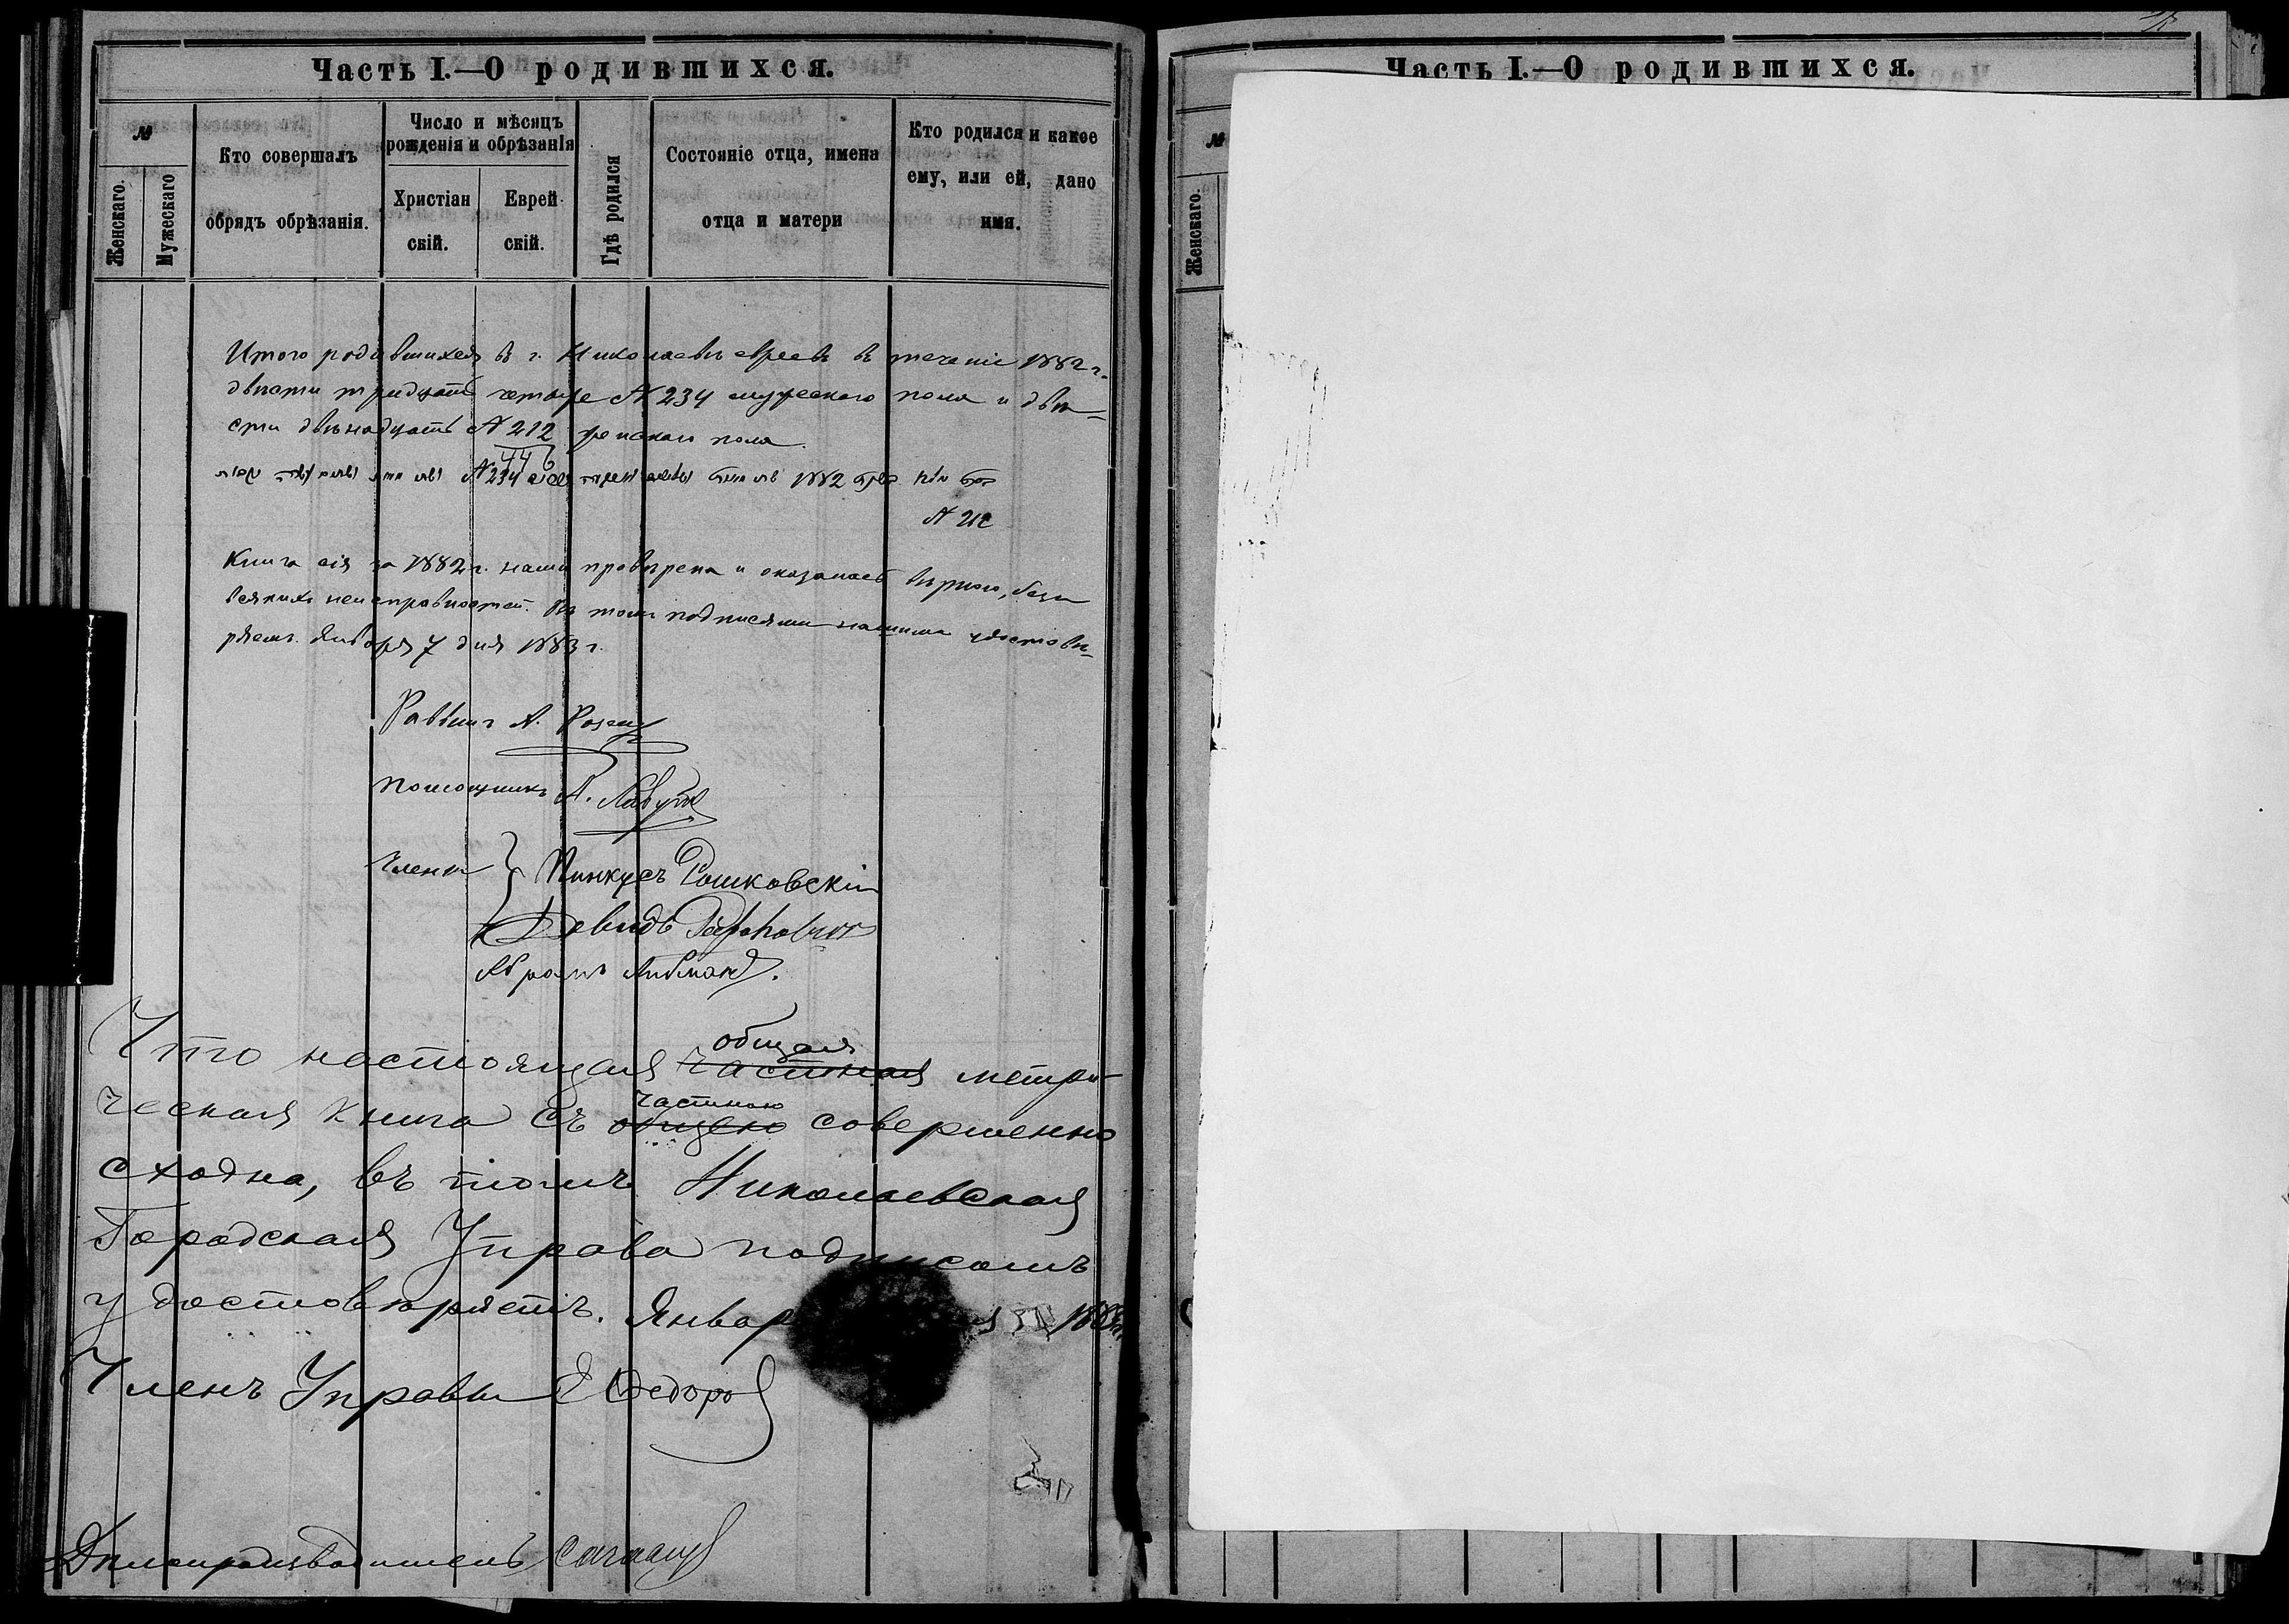 Часть I.—О родившихся.
№
Женскаго.
Мужескаго
Кто совершалъ
обрядъ обрѣзанія.
Число и мѣсяцъ
рожденія и обрѣзанія
Христіан
скій.
Еврей
скій.
Гдѣ родился
Состояніе отца, имена
отца и матери
Кто родился и какое
ему, или ей, дано
имя.
Итого родившихся въ г. Николаевѣ евреевъ въ теченіе 1882 г.
двѣсти тридцать четыре № 234 мужескаго пола и двѣ-
сти двѣнадцать № 212 женскаго пола
446
№ 234 1882
№ 212
Книга сія за 1882 г. нами провѣрена и оказалась вѣрною, безъ
всякихъ неисправностей. Въ томъ подписями нашими удостовѣ-
ряемъ. Января 7 дня 1883 г.
Раввинъ А.
Помощникъ А.
Члены } Пинкусъ Рошковскій
Девидъ
Абрамъ Либман
Что настоящая частная общая метри-
ческая книга съ общею частною совершенно
сходна, въ томъ Николаевская
Городская Управа подписомъ
удостовѣряетъ. Январ 1883 г.
Членъ Управы Федоров
Дѣлопроизводитель
Часть I.—О родившихся.
№
Женскаго.